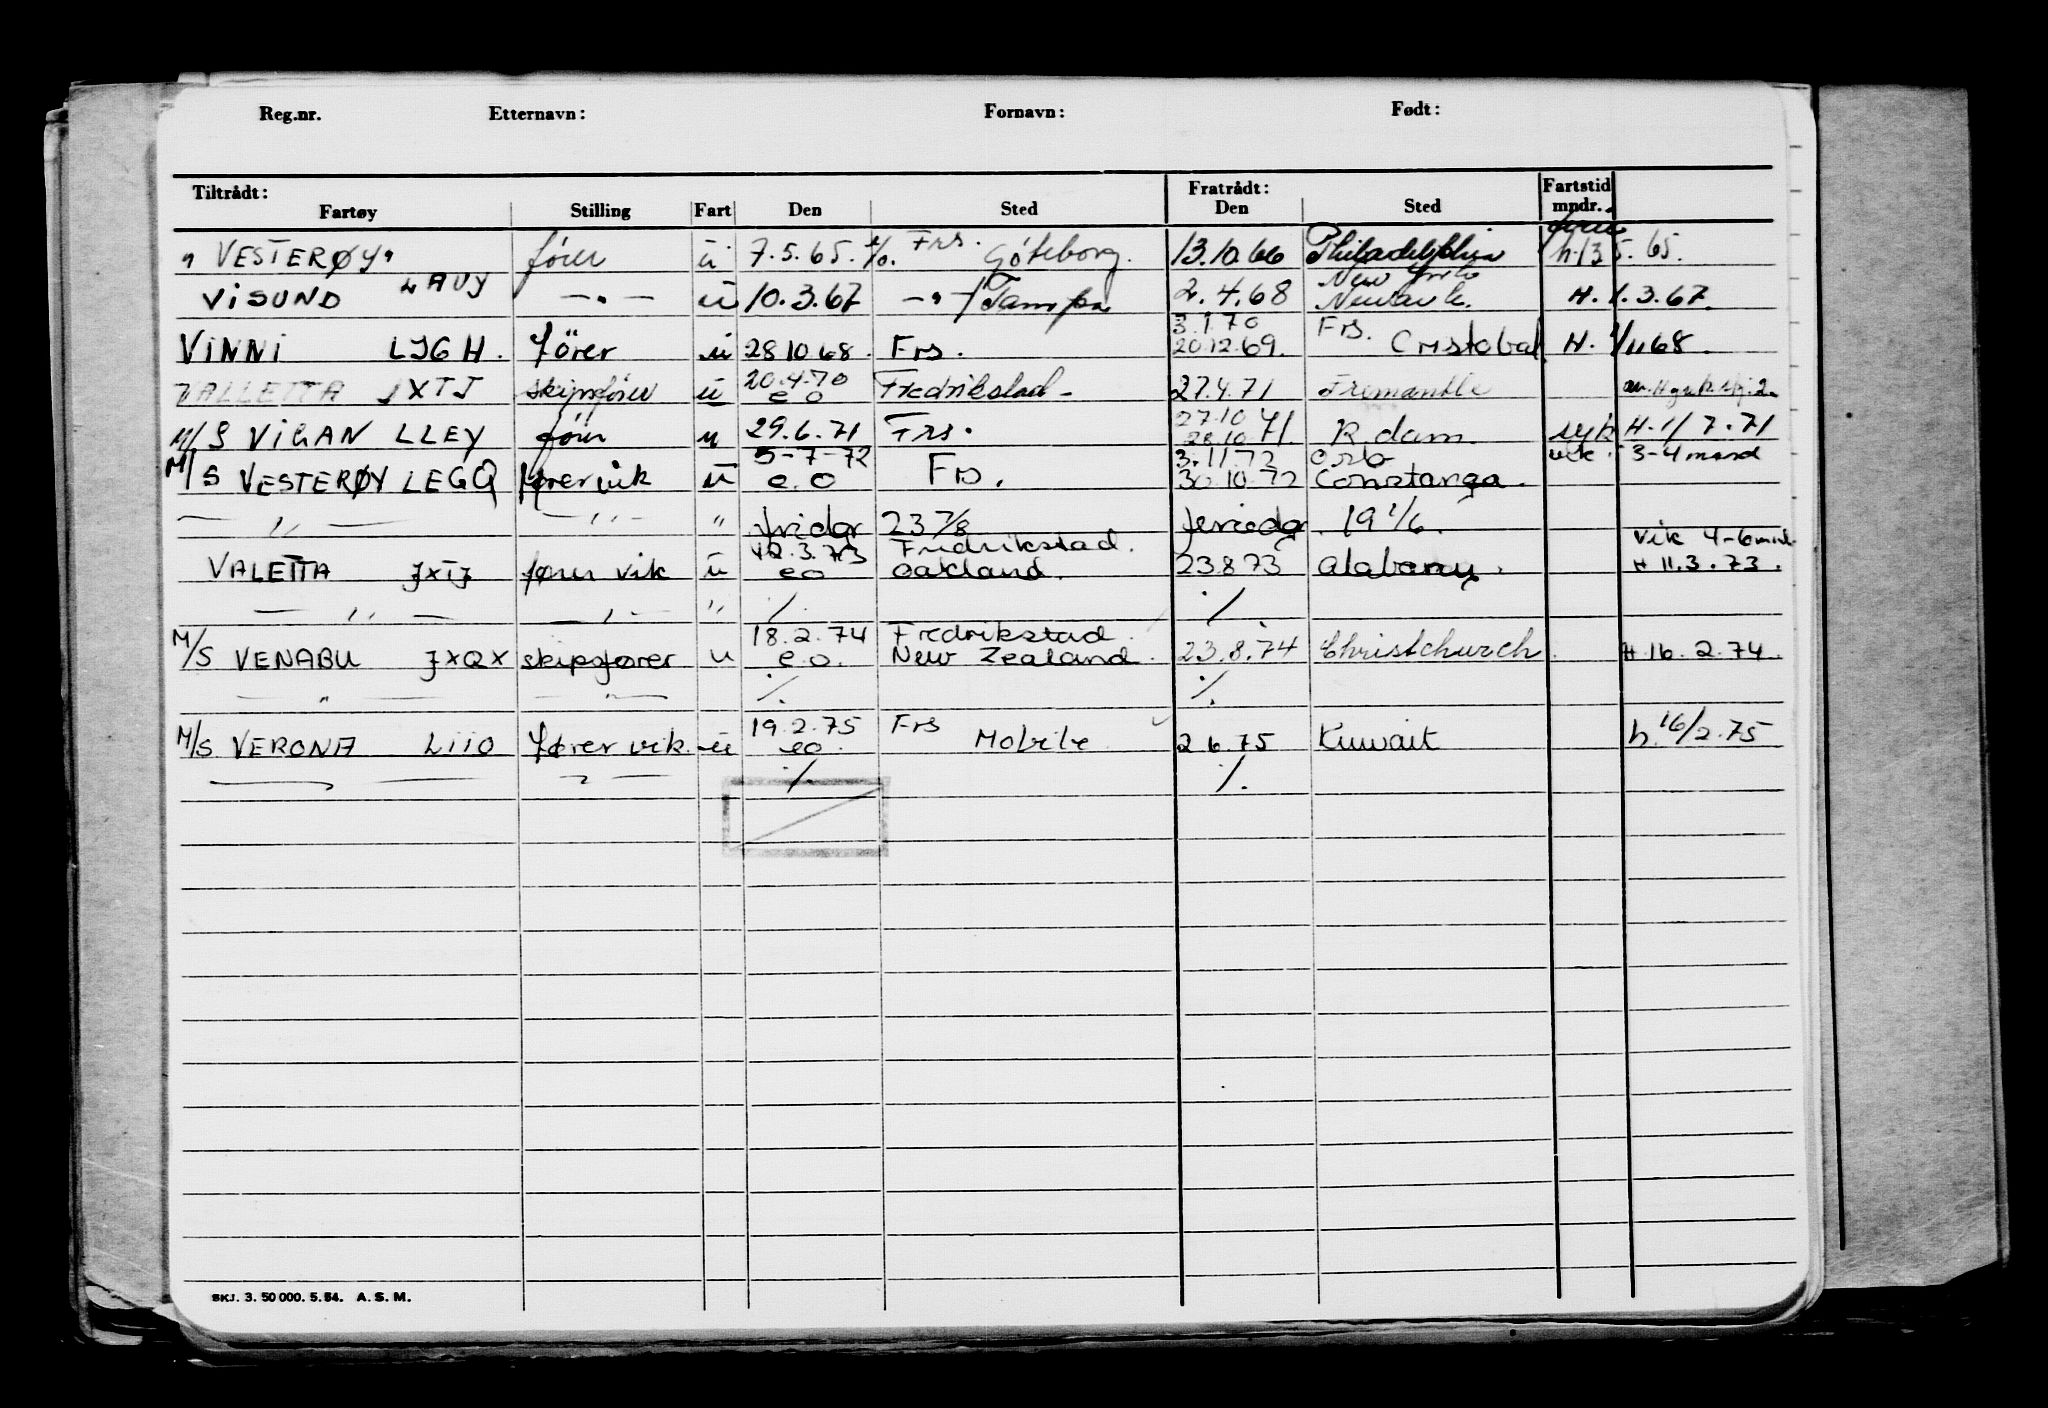 Reg.nr. Etternavn: Fornavn: Født:
Tiltrådt: Fratrådt: Fartstid
Fartøy Stilling Fart Den Sted Den Sted mndr.
"VESTERØY" fører u 7.5.65. e/o. Frs. Göteborg. 13.10.66 Philadelphia h.13.5.65.
VISUND LAUY —"— u 10.3.67 —"—/Tampa 2.4.68 New York Newark. H. 1.3.67.
VINNI LJGH. fører u 28 10 68. Frs. 3.1.70 20.12.69. Frs. Cristobal H. 1/11 68.
VALLETTA JXTJ skipsfører u 20.4.70 e o Fredrikstad - 27.4.71 Fremantle
M/S VIGAN LLEY fører u 29.6.71 Frs. 27.10 28.10 71. R.dam. syk H. 1/7.71
M/S VESTERØY LEGQ fører vik u 5-7-72 e.o Frs. 3.11.72 30.10.72 Oslo Constanza. vik. 3-4 mnd
— " — — " — " 23 7/8 19 1/6.
VALETTA JXTJ fører vik u 12.3.73 eo Fredrikstad. Oakland. 23873 vik 4-6 mnd. H 11.3.73.
— " — — " — " ./. ./.
M/S VENABU JXQX skipsfører u 18.2.74 e.o. Fredrikstad New Zealand. 23.8.74 Christchurch H.16.2.74.
— " — — " — ./. ./.
M/S VERONA LIIO fører vik. u 19.2.75 eo. Frs Mobile 2 6.75 Kuwait h. 16/2.75
./. ./.
SKJ. 3. 50 000. 5. 54. A. S. M.